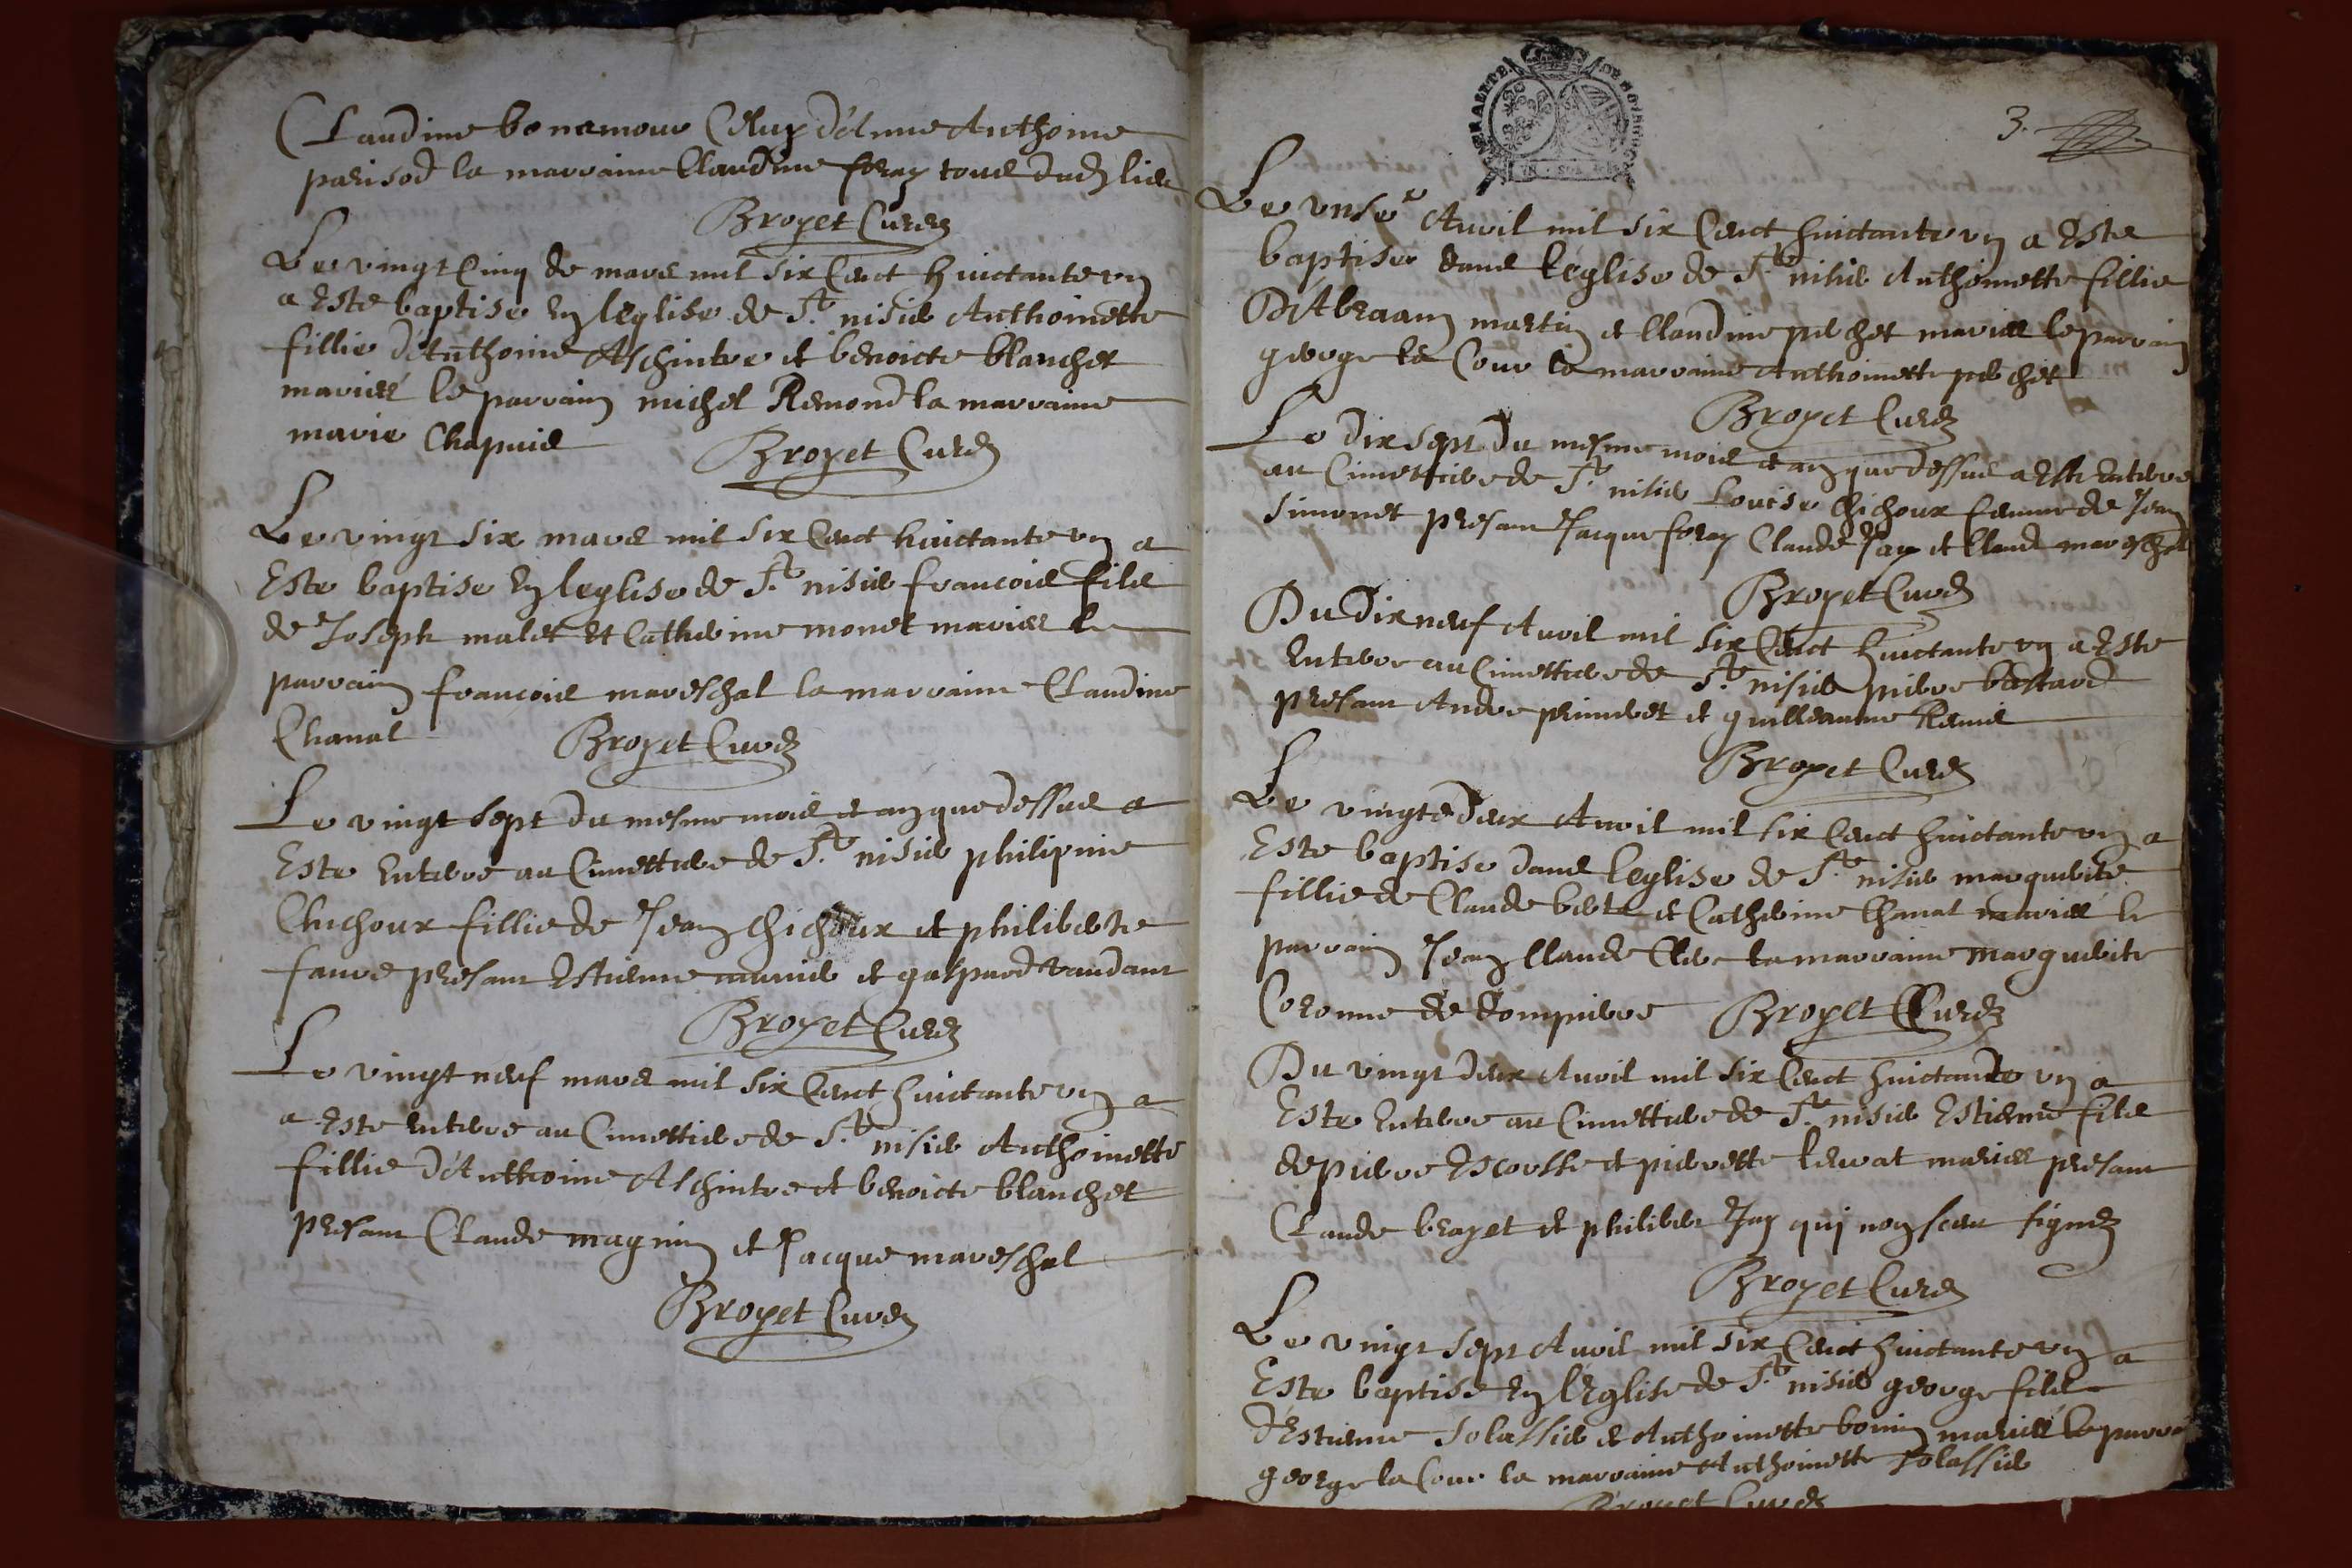 Claudine bonamour Celuy d'Anne Anthoine
parisod la marraine Claudine foray tous dud lieu
Broyet Curez
Le vingt Cinq de mars mil six Cent huictante un
a Este baptise en leglise de St. nisier Anthoinette
fillie d'Anthoine Aschintre et benoicte blanchet
mariés le parrain michel Remond la marraine
marie Chapuis Broyet Curez
Le vingt six mars mil six Cent huictante un a
Este baptise en leglise de St. nisier francois fils
de Joseph malet et Catherine monet mariés le
parrain francois mareschal la marraine Claudine
Chanal Broyet Curez
Le vingt sept du mesme mois et an que dessus a
Este Enterre au Cimettiere de St. nisier philipine
Chichoux fillie de Jean Chichoux et philiberte
faure presant Estienne et gaspard vaudant
Broyet Curez
Le vingt neuf mars mil six Cent huictante un a
a Este enterre au Cimettiere de St. nisier Anthoinette
fillie d'Anthoine Aschintre et benoicte blanchet
presant Claude magnin et Jacque mareschal
Broyet Curez
3.
Le unse Avril mil six Cent huictante un a Este
baptise dans l'eglise de St. nisier Anthoinette fillie
D'Abraam martin et Claudine perchet mariés le parrain
george la Cour la marraine Anthoinette perchet
Broyet Curez
Le dix sept du mesme mois et an que dessus a Este Enterre
au Cimettiere de St. nisier Louise Chichoux femme de Jean
simonet presant Jacque foray Claude Jay et Claude mareschal
Broyet Curez
Du Dix neuf Avril mil six Cent huictante un a Este
Enterre au Cimettiere de St. nisier pierre bastard
presant Andre primevet et guilleaume Remis
Broyet Curez
Le vingte deux Avril mil six Cent huictante un a
Este baptise dans leglise de St. nisier marguerite
fillie de Claude berte et Catherine Chanal mariés le
parrain Jean Claude Clere la marraine marguerite
Coronne de dompierre Broyet Curez
Du vingt deux Avril mil six Cent huictante un a
Este Enterre au Cimettiere de St. nisier Estienne fils
de pierre Escoffe et pierrette lerrat mariés presant
Claude brayet et philibert Jay qui non sceu signez
Broyet Curez
Le vingt sept Avril mil six Cent huictante un a
Este baptise en l'Eglise de St. nisier george fils
d'Estienne Solassier et Anthoinette bonin mariés le parra
george la Cour la marraine Anthoinette Solassier
Broyet Curez